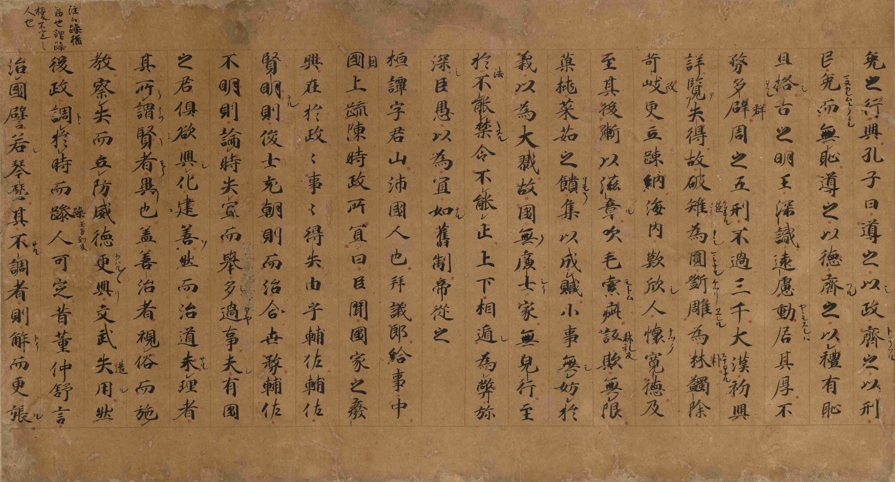 免之行興孔子曰導之以政齊之以刑
民免而無恥導之以德齊之以禮有恥
且格古之明王深識遠慮動居其厚不
務多辟周之五刑不過三千大漢初興
詳覽失得故破矩為圓斷雕為林蠲除
苛岐更立踈納海内歡欣人懷寛德及
至其後漸以滋章吹毛索疵詆欺無限
菓桃菜茹之饋集以成贓小事無妨於
義以為大戮故國無廉士家無完行至
於不能禁令不能止上下相遁為弊弥
深臣愚以為宜如舊制帝從之
桓譚字君山沛國人也拜議郎給事中
國上疏陳時政所宜曰臣聞國家之廢
興在於政〻事〻得失由乎輔佐輔佐
賢明則俊士充朝則而治合世務輔佐
不明則論時失宜而舉多過事夫有國
之君俱欲興化建善然而治道未理者
其所謂賢者異也盖善治者視俗而施
教察失而立防威德更興文武失用然
後政調於時而躁人可定昔董仲舒言
治國譬若琴瑟其不調者則解而更張
注云躁猶
動也謂躁
擾不定之
人也